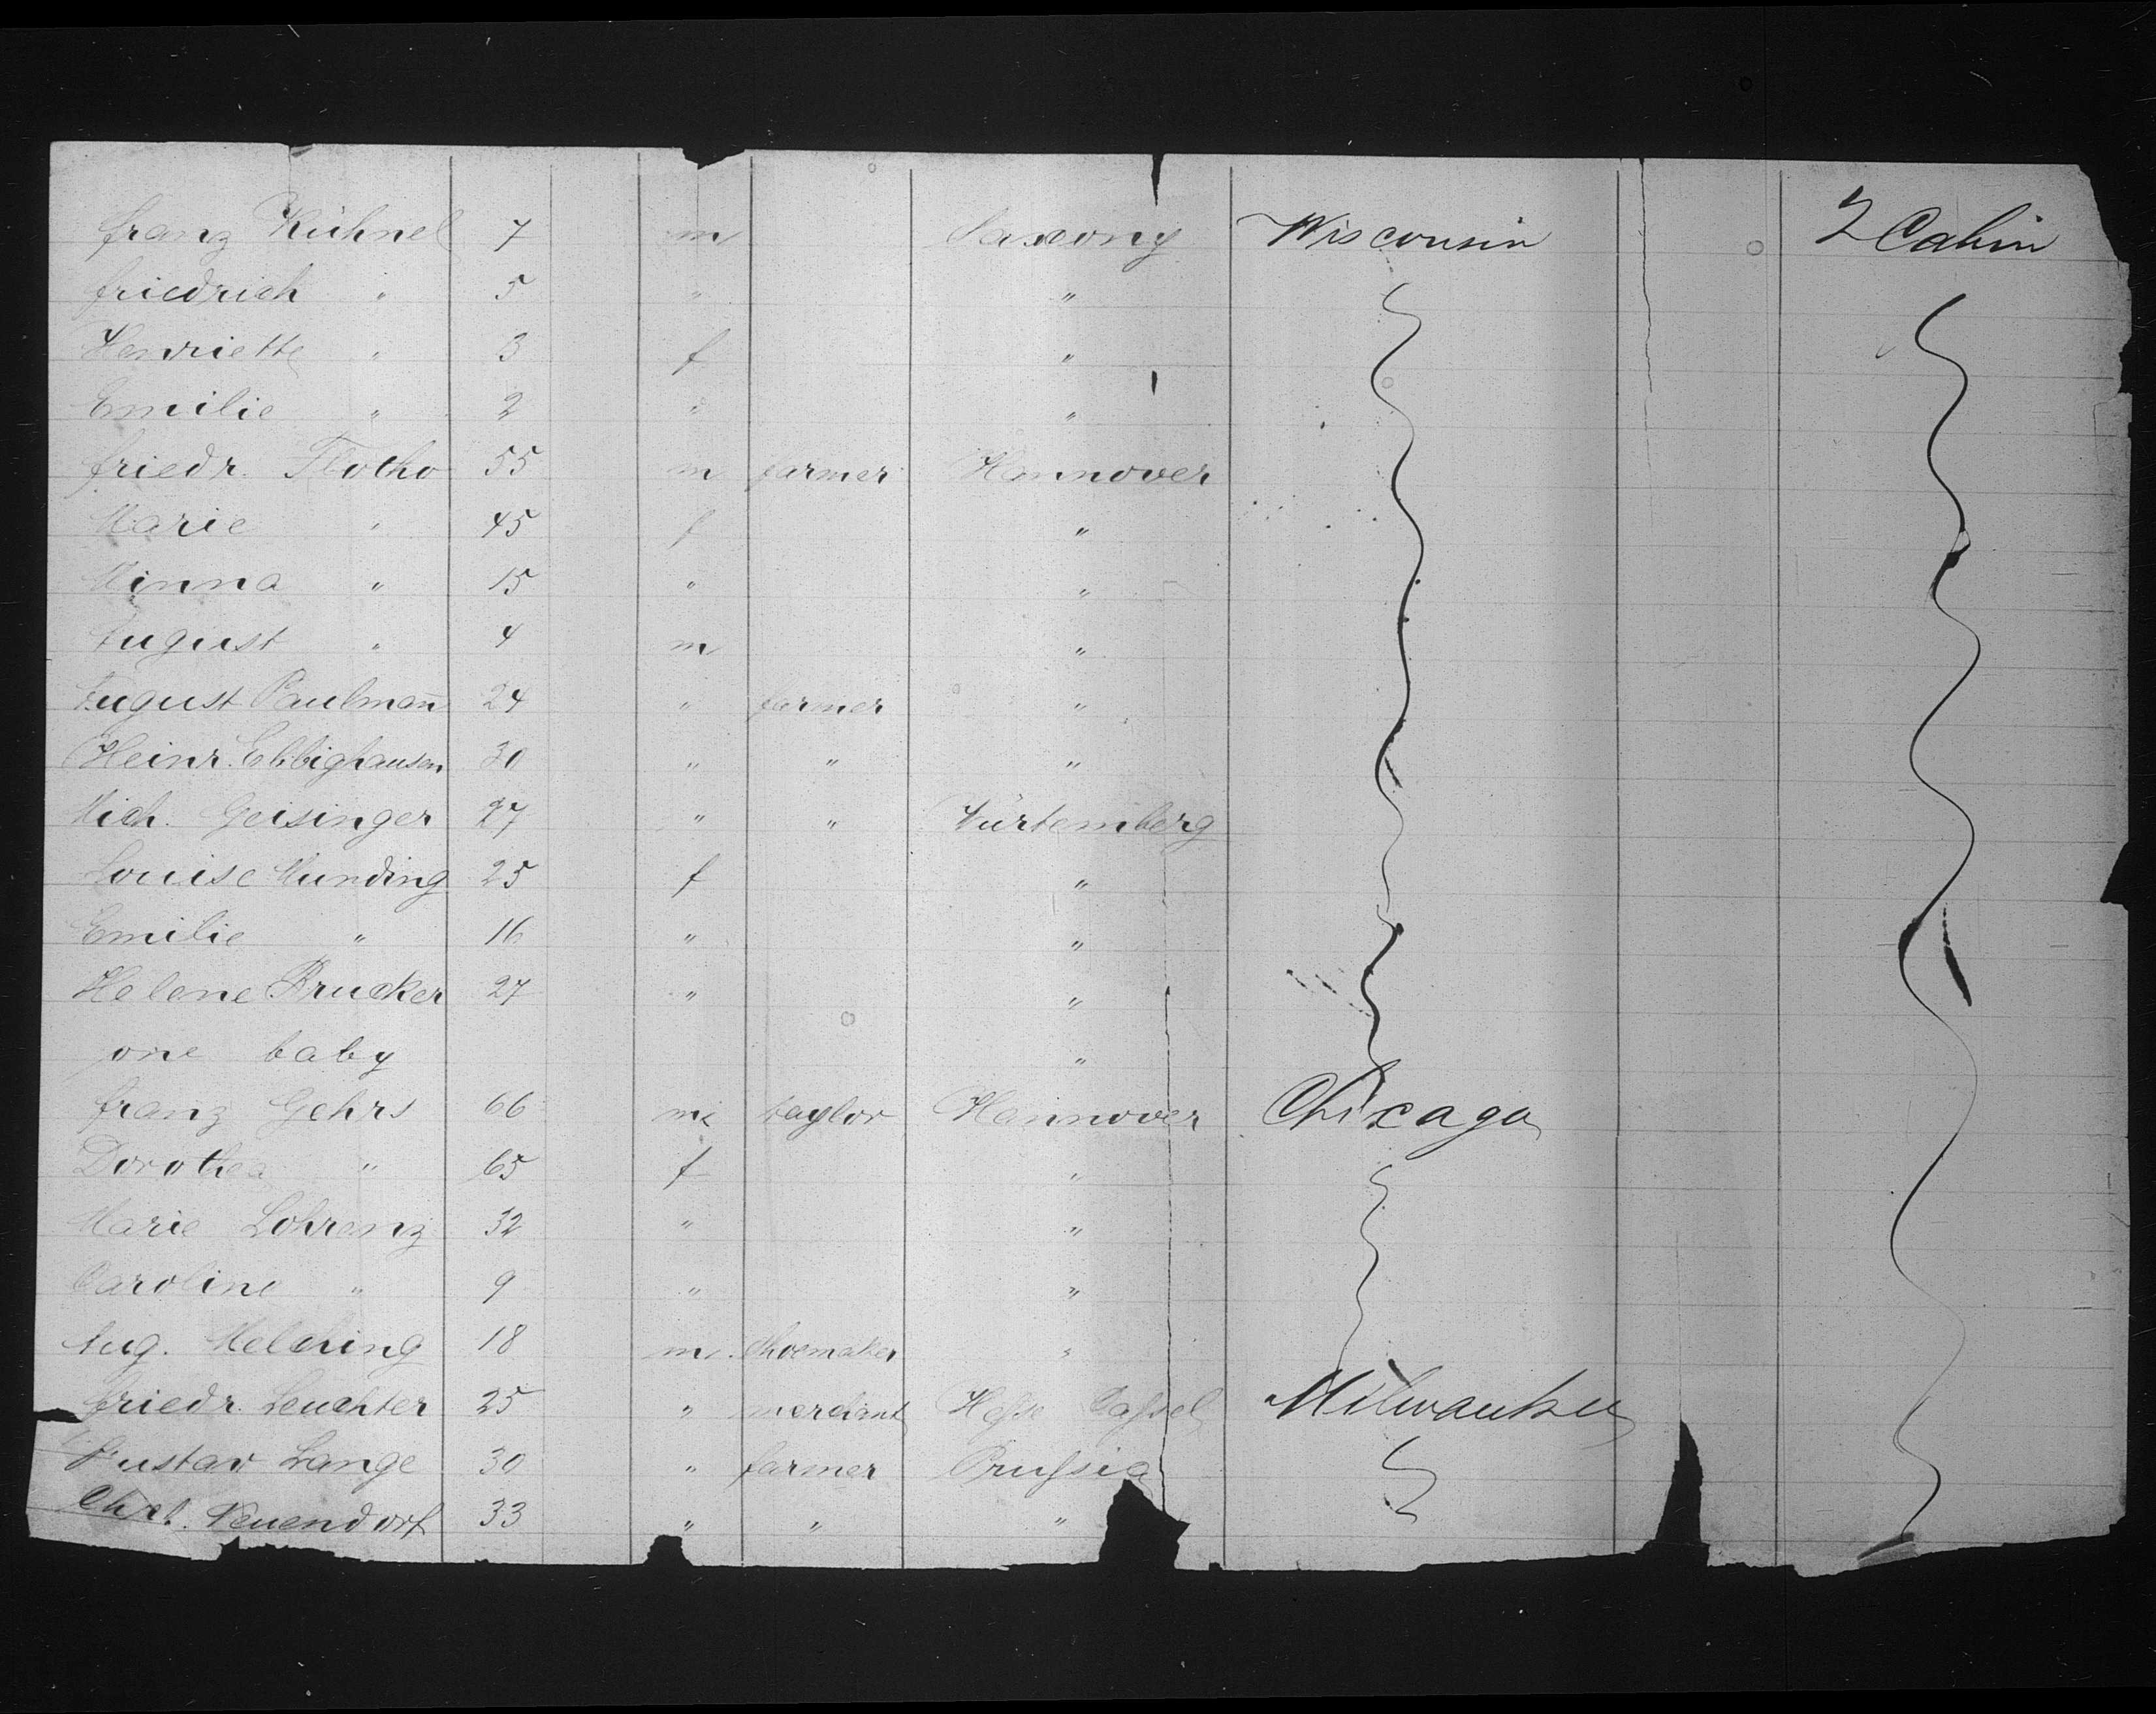 Franz Kühnel 7 m Saxony Wisconsin 2 Cabin
Friedrich " 5 " "
Henriette " 3 f "
Emilie " 2 " "
Friedr. Flotho 55 m farmer Hannover
Marie " 45 f "
Minna " 15 " "
August " 4 m "
August Paulman̄ 24 " farmer "
Heinr. Ebbighausen 30 " " "
Mich. Geisinger 27 " " Würtemberg
Louise Munding 25 f "
Emilie " 16 " "
Helene Brucker 27 " "
one baby "
Franz Gehrs 66 m taylor Hannover Chicago
Dorothea " 65 f "
Marie Lohrenz 32 " "
Caroline " 9 " "
Aug. Melching 18 m. shoemaker "
Friedr. Leuchter 25 " merchant Hesse Cassel Milwaukee
Gustav Lange 30 " farmer Prussia
Neuendorf 33 " " "